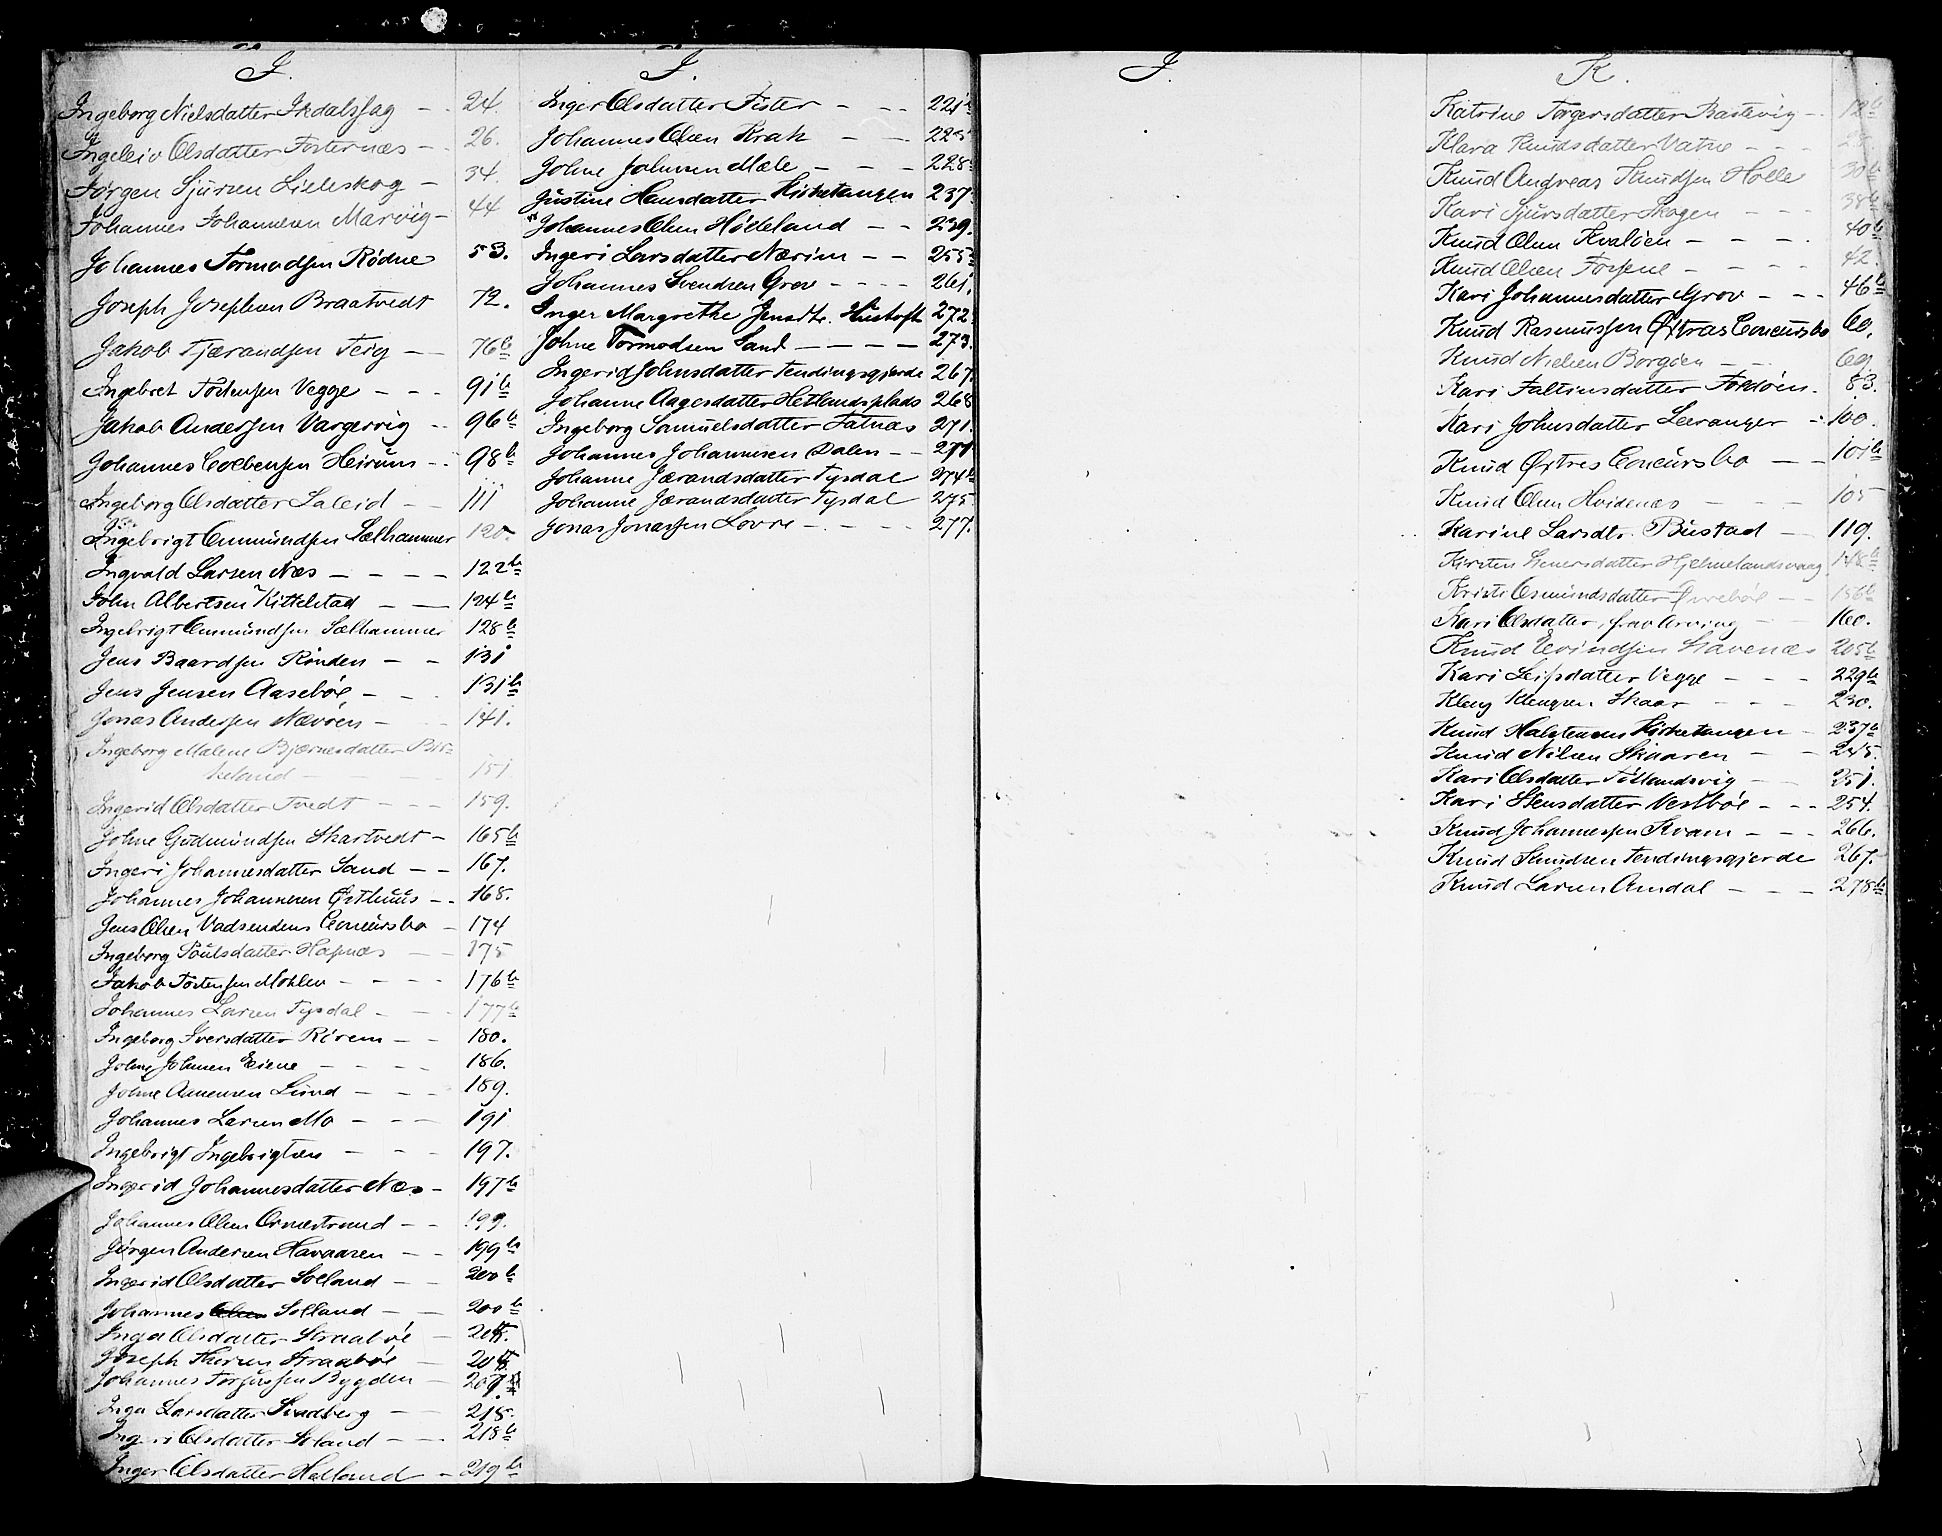 I.
Ingeborg Nielsdatter - - 24.
Ingeleiv Olsdatter Fosternæs - - 26.
Jørgen Sjursen Lieleskog - 34.
Johannes Johannesen Marvig - 44
Johannes Tormodsen Rødne 53.
Joseph Josephsen Braatvedt 72.
Jakob Tjærandsen Teig - - 76b
Ingebret Tostensen Vegge - - - 91b
Jakob Andersen Vargervig - - 96b
Johannes Colbensen Heirum - - 98b
Ingeborg Olsdatter Saleid - - 111
Ingebrigt Omundsen Sælhammer 120.
Ingvald Larsen Næs - - - - 122b
John Albertsen Kittelstad - - 124b
Ingebrigt Omundsen Sælhammer 128b
Jens Baardsen Rønden - - 131
Jens Jensen Aasebøe - - 131b
Jonas Andersen Nævøen - - 141.
Ingeborg Malene Bjørnesdatter Bir-
keland - - - 151
Ingerid Olsdatter Tvedt - - - 159.
Johne Gudmundsen Skartvedt - 165b
Ingeri Johannesdatter Sand - - 167.
Johannes Johannesen Østhuus - - 168.
Jens Olsen Vadsendens Concursbo - 174
Ingeborg Poulsdatter Hapnæs - - 175
Jakob Tostensen Mohlen - - - - 176b
Johannes Larsen Tysdal - - 177b
Ingeborg Iversdatter Rørem - - 180.
Johne Johnsen Eiene - - - - 186.
Johne Aanensen Lund - - - 189.
Johannes Larsen Mo - - - 191
Ingebrigt Ingebrigtsen - - - 197.
Ingerid Johannesdatter Næs - 197b
Johannes Olsen Ornæstrand - - 199.
Jørgen Andersen Havaasen - - 199b
Ingerid Olsdatter Soeland - - 200b
Johannes Olsen Solland - - 200b
Inga Olsdatter Straabøe -
Joseph Thorsen Straabøe -
Johannes Torgersen Bygden -
Inga Larsdatter Sandberg - - 218.
Ingeri Olsdatter Soland - - 218b
Inger Olsdatter Halland - 219b
I.
Inger Olsdatter Fister - - - 221b
Johannes Olsen Krak - - 225
Johne Johnsen Mæle - - 228b
Justine Hansdatter Kirketangen 237.
Johannes Olsen Hødeland - - 239.
Ingeri Larsdatter Nærim - - 255b
Johannes Svendsen Grov - - - - 261.
Inger Margrethe Jensdtr. Hustoft 272.
Johne Tormodsen Sand - - - - 273.
Ingerid Johnsdatter Tendingsgjerde 267.
Johanne Aagesdatter Hetlandsplads 268
Ingeborg Samuelsdatter Fatnæs 271.
Johannes Johannesen Dalen - - 271
Johanne Jærandsdatter Tysdal 274b
Johanne Jærandsdatter Tysdal 275
Jonas Jonassen Lovre - - - - 277.
I.
K.
Katrine Torgersdatter Bastevig - - 12b
Klara Knudsdatter Vatne - - - 28
Knud Andreas Knudsen Holle 30b
Kari Sjursdatter Skogen - - - 38b
Knud Olsen Kvaløen - - - - 40b
Knud Olsen Forsene - - - - 42.
Kari Johannesdatter Grov - - - 46b
Knud Rasmussen Øxtras Concursbo 60.
Knud Nielsen Borgøen - - 69.
Kari Faltinsdatter Foldøen - 83.
Kari Johnsdatter Leeranger - 100.
Knud Øxtres Concursbo - - 101b
Knud Olsen Hvidenæs - - - 105
Karine Larsdtr. Bustad - - 119.
Kirsten Sivertsdatter Hjelmelandsvaag 148b
Kristi Osmundsdatter - - 156b
Kari Olsdatter, - - 160.
Knud Eivindsen Stavenæs 205b
Kari Leifsdatter Vegge - - - 229b
Skaar - - - 230.
Knud Halstensen Kirketangen - 237b
Knud Nilsen Skaaren - - 245.
Kari Olsdatter Tøtlandsvig - - 251.
Kari Stensdatter Vestbøe - - - 254.
Knud Johannessen Kvam - - - 266.
Knud Knudsen Tendingsgjerde 267.
Knud Larsen Amdal - - - 278b